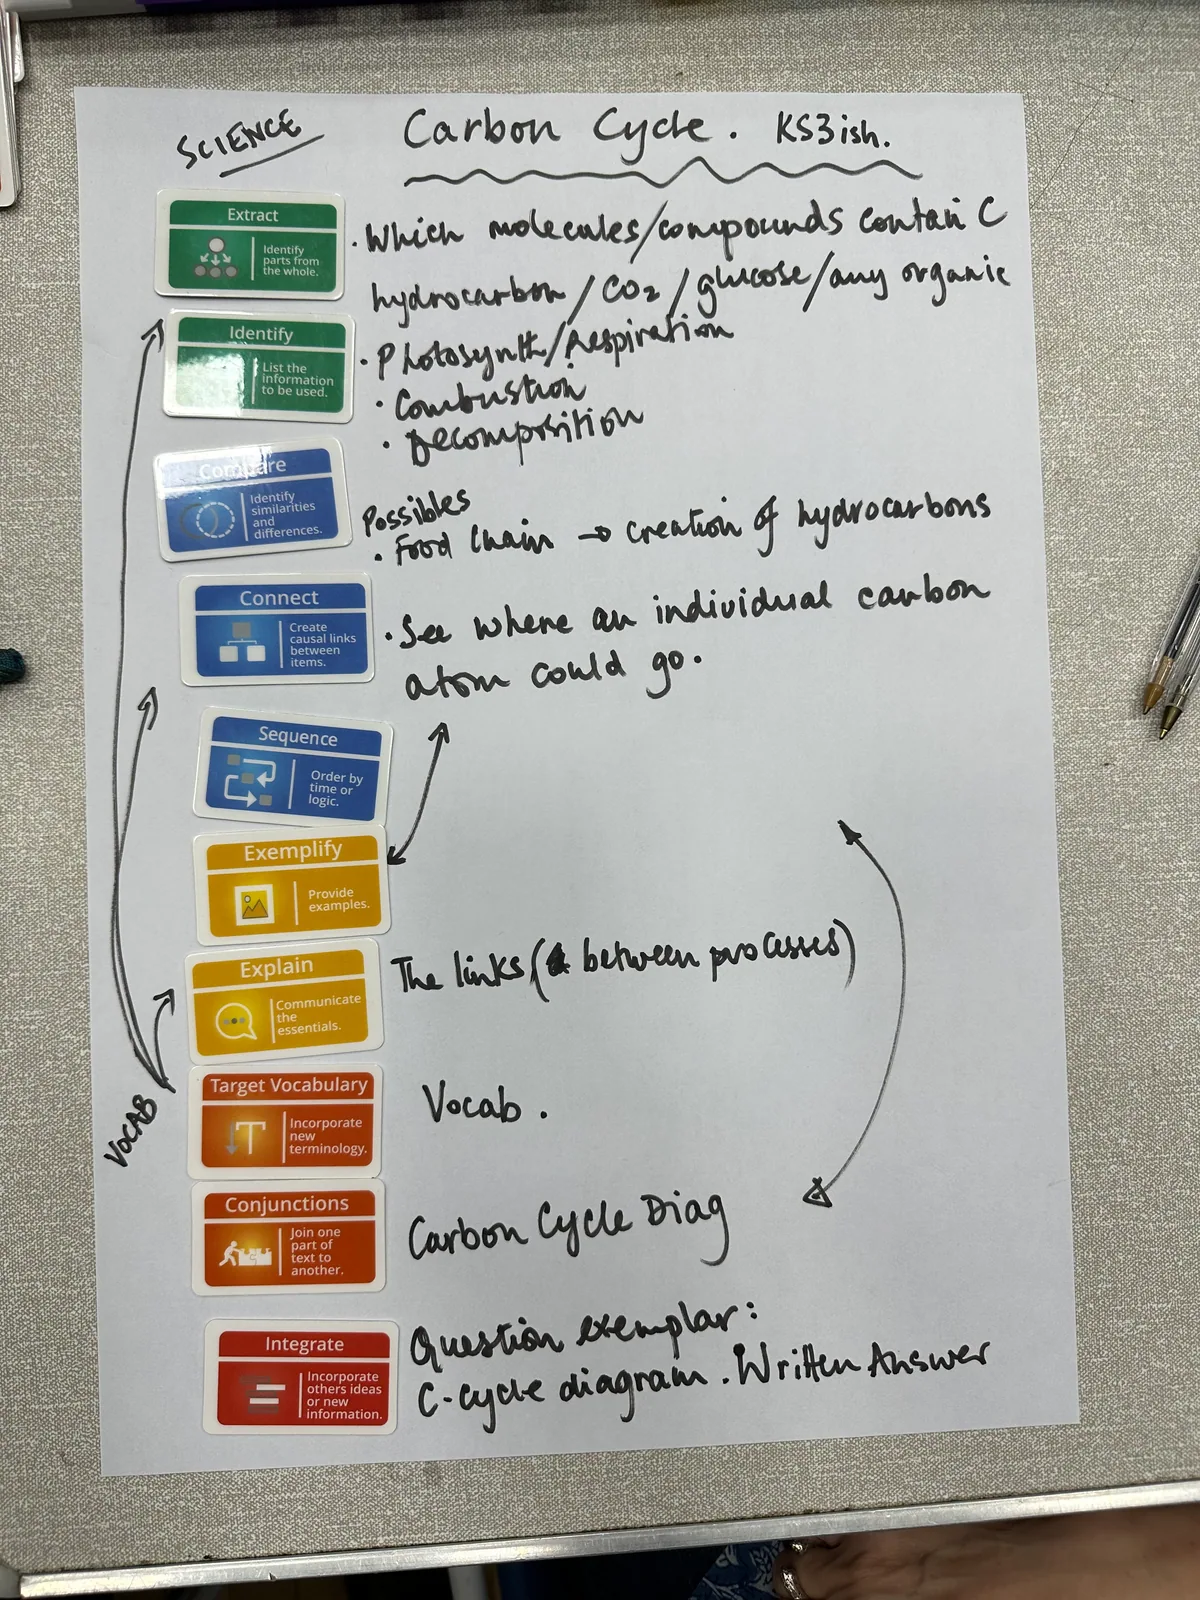 SCIENCE
Carbon Cycle. KS3ish.
Extract
Identify
parts from
the whole.
• Which molecules/compounds contain C
hydrocarbon/CO2/glucose/any organic
Identify
List the
information
to be used.
• Photosynth/Respiration
• Combustion
• Decomposition
Compare
Identify
similarities
and
differences.
Possibles
• Food Chain → creation of hydrocarbons
Connect
Create
causal links
between
items.
• See where an individual carbon
atom could go.
Sequence
Order by
time or
logic.
Exemplify
Provide
examples.
Explain
Communicate
the
essentials.
The links ( between processes)
Target Vocabulary
Incorporate
new
terminology.
VOCAB
Vocab.
Conjunctions
Join one
part of
text to
another.
Carbon Cycle Diag
Integrate
Incorporate
others ideas
or new
information.
Question exemplar:
C-cycle diagram. Written Answer